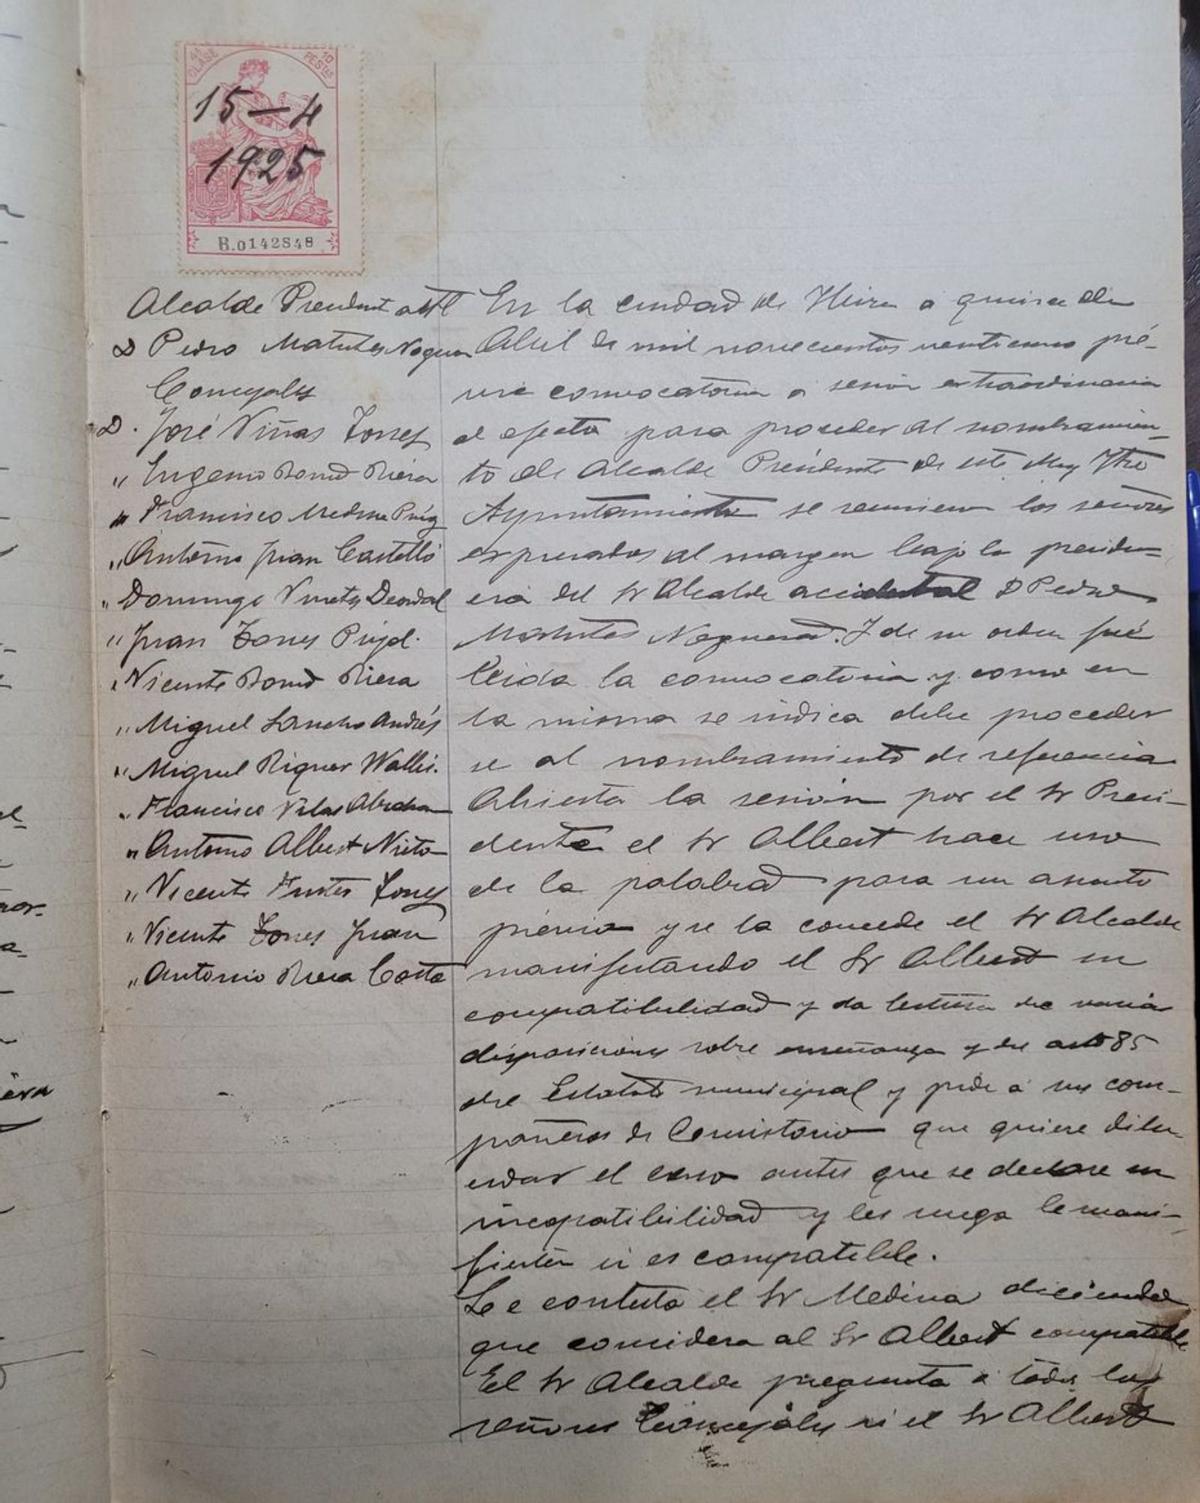 4ª CLASE
10 PESTAS
15-4
1925
B.0142848
Alcalde President actl
D Pedro Matutes Noguera
Concejales
D. José Viñas Torres
" Eugenio Bonet Riera
" Francisco Medina Puig
" Antonio Juan Castelló
" Domingo Vinets
" Juan Torres Pujol.
" Vicente Bonet Riera
" Miguel Sancho Andrés
" Miguel Riquer Wallis.
" Francisco Vilas
" Antonio Albert Nieto
" Vicente Fustér Torres
" Vicente Torres Juan
" Antonio Riera Costa
En la ciudad de Ibiza a quince de
Abril de mil novecientos veinticinco pré-
via convocatoria a sesión extraordinaria
al efecto para proceder al nombramien-
to de Alcalde Presidente de este Muy Iltre
Ayuntamiento se reunieron los señores
expresados al margen bajo la presiden-
cia del Sr Alcalde accidental D Pedro
Matutes Noguera. Y de su orden fué
leida la convocatoria y como en
la misma se índica debe proceder
se al nombramiento de referencia
Abierta la sesión por el Sr Presi-
dente el Sr Albert hace uso
de la palabra para un asunto
prévio y se la concede el Sr Alcalde
manifestando el Sr Albert su
compatibilidad y da lectura de varias
disposiciones sobre enseñanza y del arto 85
del Estatuto municipal y pide á sus com-
pañeros de Consistorio que quiere dilu-
cidar el caso antes que se declare su
incopatibilidad y les ruega le mani-
fiesten si es compatible.
Le contesta el Sr Medina diciéndole
que considera al Sr Albert compatible
El Sr Alcalde pregunta á todos los
señores Concejales si el Sr Albert